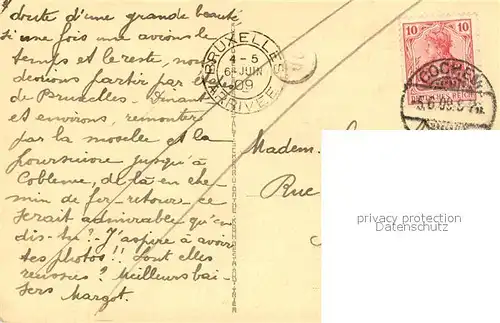 doute d'une grande beauté
Si une fois nous avions le
temps et le reste, nous
devrions partir par ex
de Bruxelles - Dinant
et environs, remonter
par la moselle et la
poursuivre jusqu'à
Coblence, de là en che-
min de fer - retour - ce
serait admirable qu'en
dis-tu? - J'aspire à avoir
tes photos!! Sont elles
réussies? Meilleurs bai-
sers Margot.
BRUXELLES
4-5
6 JUIN
09
ARRIVÉE
10 10
DEUTSCHES REICH
COCHEM
Madem.
Rue
privacy protection